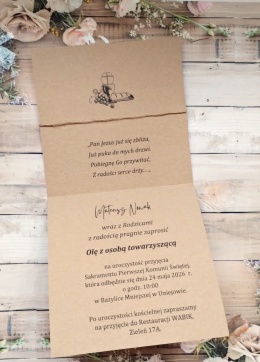 „Pan Jezus już się zbliża,
Już puka do mych drzwi.
Pobiegnę Go przywitać,
Z radości serce drży...„
Mateusz Nowak
wraz z Rodzicami
z radością pragnie zaprosić
Olę z osobą towarzyszącą
na uroczystość przyjęcia
Sakramentu Pierwszej Komunii Świętej,
która odbędzie się dnia 24 maja 2026 r.
o godz. 10:00
w Bazylice Mniejszej w Uniejowie.
Po uroczystości kościelnej zapraszamy
na przyjęcie do Restauracji WABIK,
Zieleń 17A.